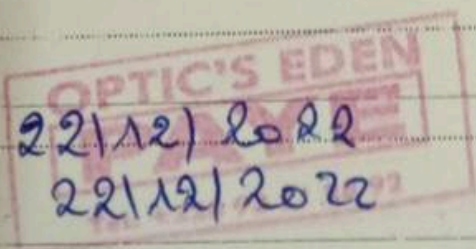 OPTIC'S EDEN
PAYE
22/12/2022
22/12/2022